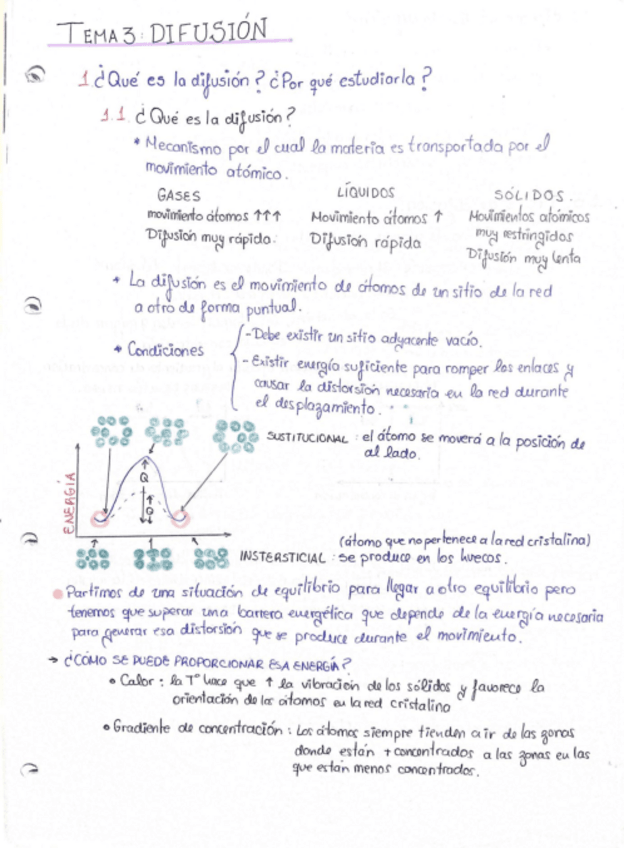 TEMA 3: DIFUSIÓN
1 ¿Qué es la difusión? ¿Por qué estudiarla?
1.1. ¿Qué es la difusión?
* Mecanismo por el cual la materia es transportada por el
movimiento atómico.
GASES
movimiento átomos ↑↑↑
Difusión muy rápida.
LÍQUIDOS
Movimiento átomos ↑
Difusión rápida
SÓLIDOS.
Movimientos atómicos
muy restringidos
Difusión muy lenta
* La difusión es el movimiento de átomos de un sitio de la red
a otro de forma puntual.
* Condiciones
- Debe existir un sitio adyacente vacío.
- Existir energía suficiente para romper los enlaces y
causar la distorsión necesaria en la red durante
el desplazamiento.
SUSTITUCIONAL: el átomo se moverá a la posición de
al lado.
ENERGÍA
Q
Q
(átomo que no pertenece a la red cristalina)
INSTERSTICIAL: se produce en los huecos.
Partimos de una situación de equilibrio para llegar a otro equilibrio pero
tenemos que superar una barrera energética que depende de la energía necesaria
para generar esa distorsión que se produce durante el movimiento.
→ ¿CÓMO SE PUEDE PROPORCIONAR ESA ENERGÍA?
• Calor: la Tº hace que ↑ la vibración de los sólidos y favorece la
orientación de los átomos en la red cristalino
• Gradiente de concentración: Los átomos siempre tienden a ir de las zonas
donde están + concentrados a las zonas en las
que están menos concentrados.